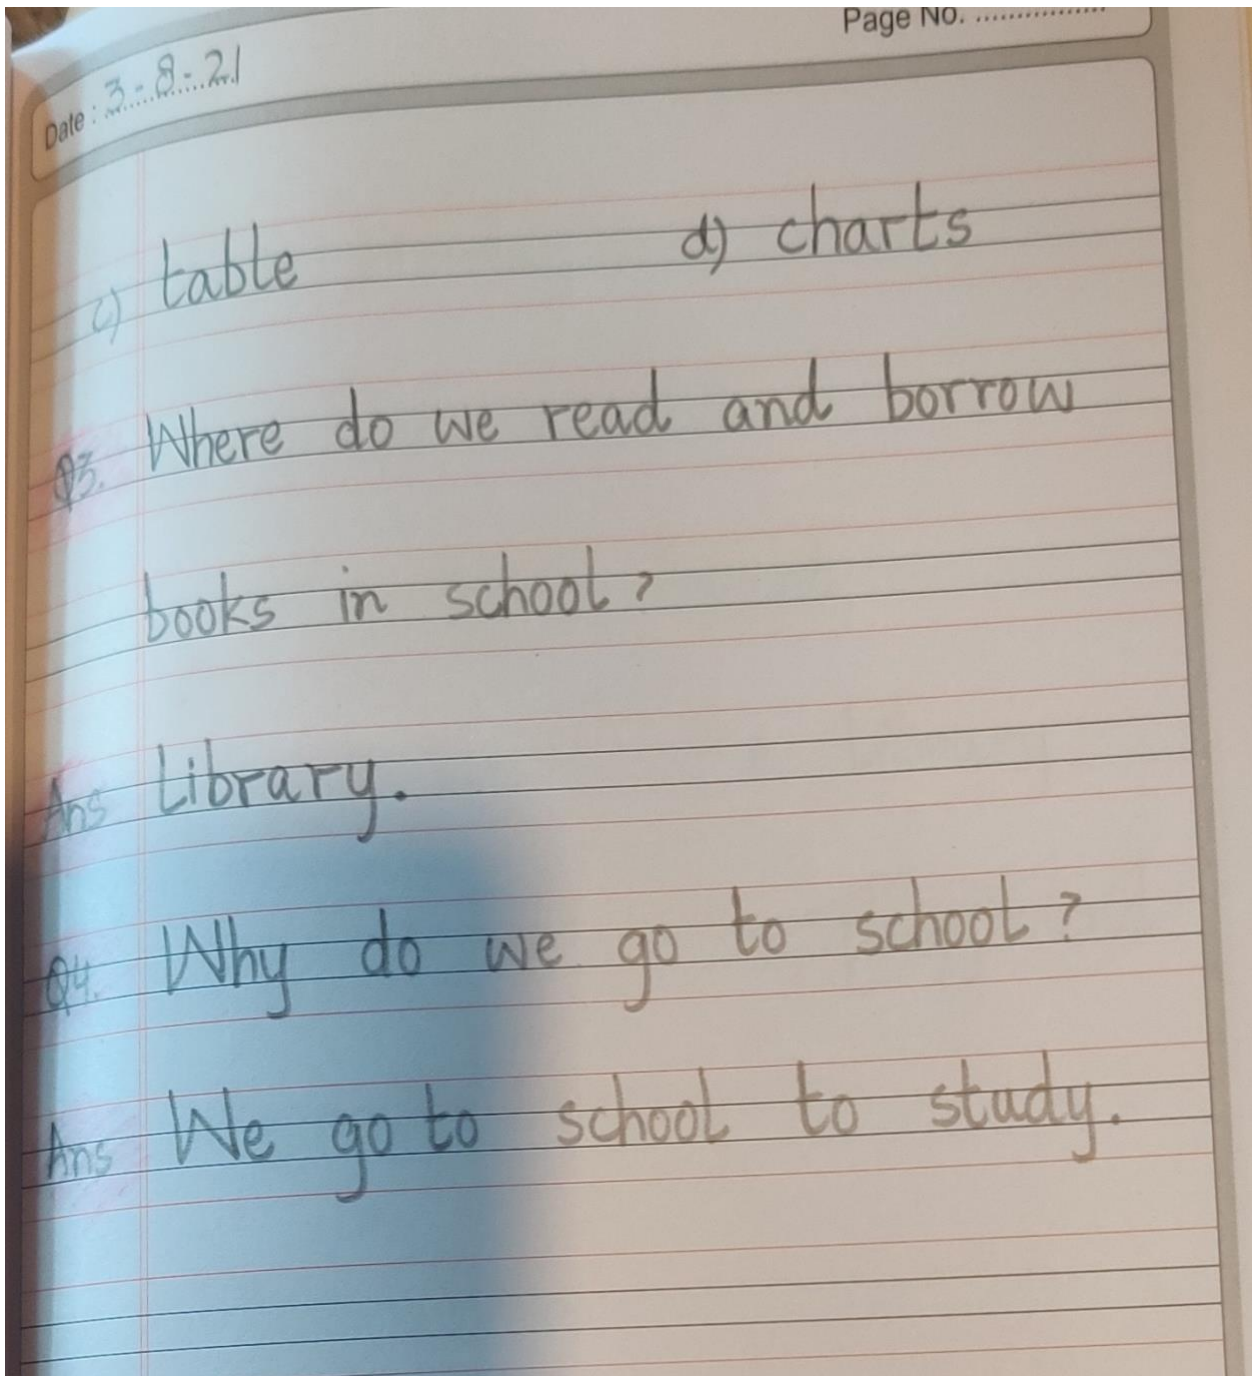 Page No. ..................
Date : 3-8-21
c) table d) charts
Q3. Where do we read and borrow
books in school?
Ans Library.
Q4. Why do we go to school?
Ans We go to school to study.